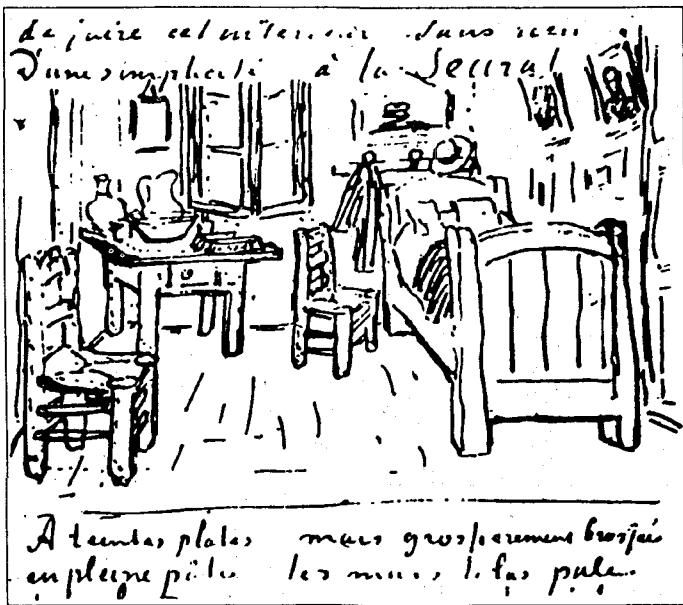 de faire cet intérieur sans rien
D'une simplicité à la Seurat
A teintes plates mais grossierement brossés
en pleine pâte les murs lilas pale